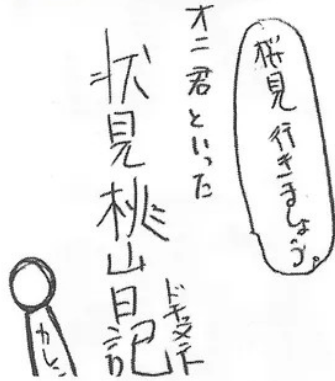 桜見行きましょう。
オニ君といった
伏見桃山日記
ドキュメント